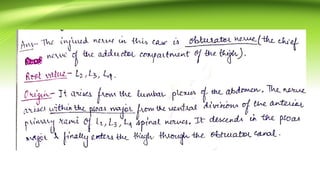 Ans- The injured nerve in this case is obturator nerve (the chief
nerve of the adductor compartment of the thigh).
Root value- L2, L3, L4.
Origin- It arises from the lumbar plexus of the abdomen. The nerve
arises within the psoas major from the ventral divisions of the anterior
primary rami of L2, L3, L4 spinal nerves. It descends in the psoas
major & finally enters the thigh through the obturator canal.